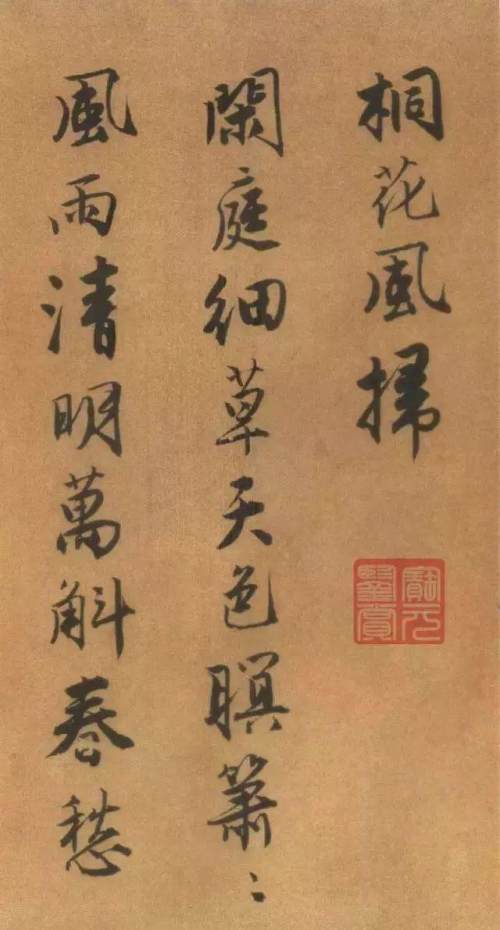 桐花風掃
閑庭細草天色暝簫〻
風雨清明萬斛春愁